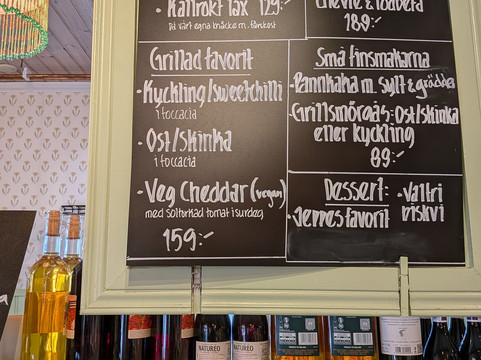 Kallrökt lax 129:-
på vårt egna knäcke m. färskost
Chevre & rödbeta
189:-
Grillad favorit
• Kyckling/sweetchilli
i foccacia
• Ost/skinka
i foccacia
• Veg Cheddar (vegan)
med soltorkad tomat i surdeg
159:-
Små finsmakarna
• Pannkaka m. sylt & grädde
• Grillsmörgås: ost/skinka
eller kyckling
89:-
Dessert:
• Jennes favorit
• Valfri
biskvi
NATUREO
NATUREO